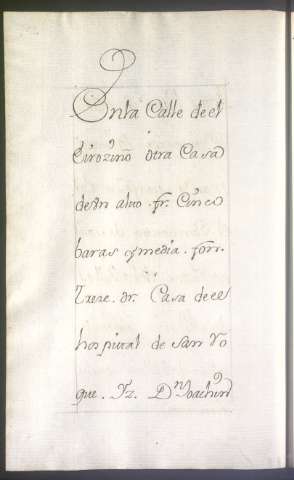 Enla Calle de el
otra Casa
de Vn alto fr. Cinco
baras y media. fon.
treze. dr. Casa de el
hospital de San Ro
que. Yz. Dn. Joachin